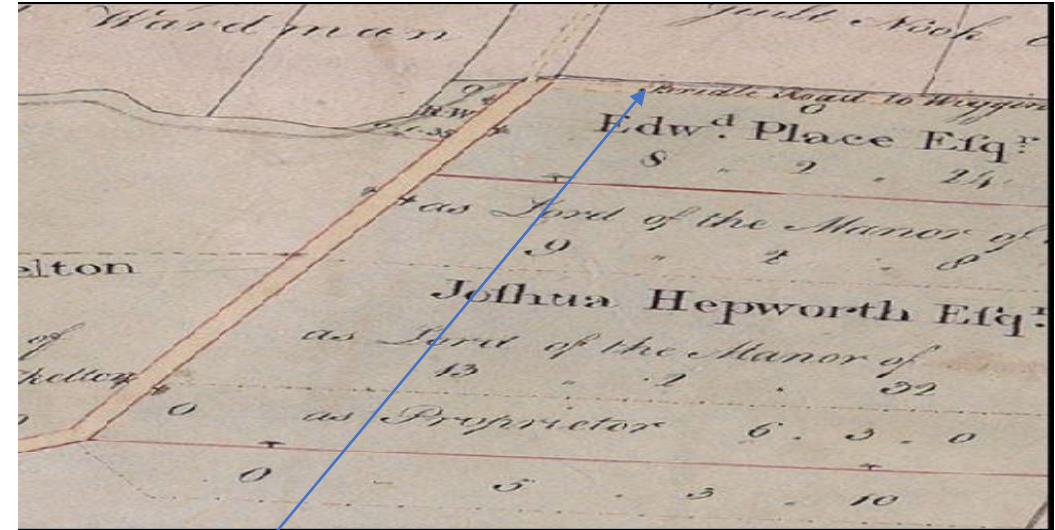 Wardman
Nook
Bridle Road to Wiggin
9
Edwd. Place Esqr.
8 . 2 . 24
as Lord of the Manor of
9 . 2 . 8
elton
Joshua Hepworth Esqr.
as Lord of the Manor of
of
13 . 2 . 32
kelton
0
as Proprietor 6 . 3 . 0
0 . 5 . 3 . 10